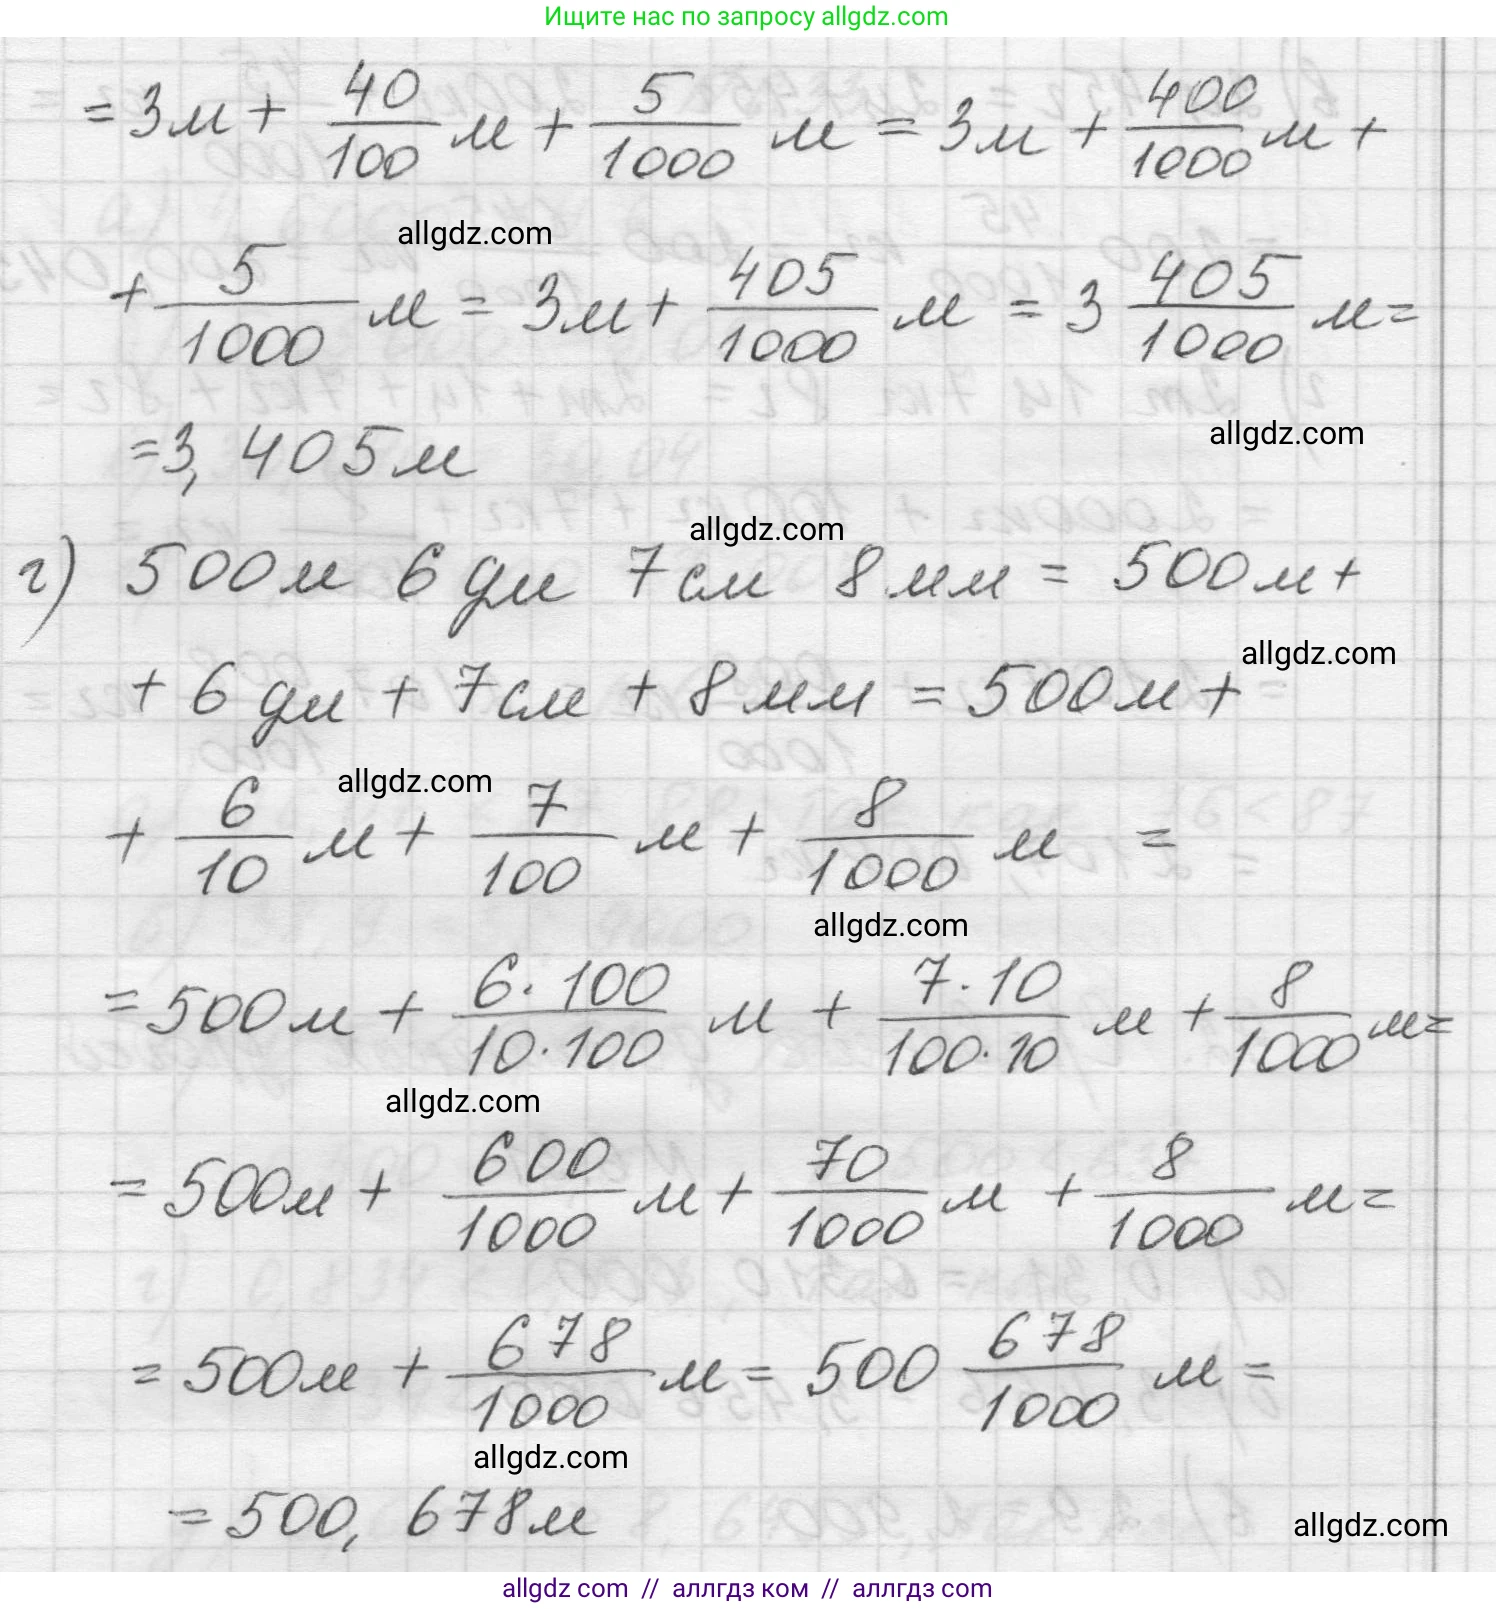 Ищите нас по запросу allgdz.com
= 3м + 40/100 м + 5/1000 м = 3м + 400/1000 м +
allgdz.com
+ 5/1000 м = 3м + 405/1000 м = 3 405/1000 м =
= 3,405м
allgdz.com
allgdz.com
г) 500м 6дм 7см 8мм = 500м +
allgdz.com
+ 6дм + 7см + 8мм = 500м +
allgdz.com
+ 6/10 м + 7/100 м + 8/1000 м =
allgdz.com
= 500м + 6·100/10·100 м + 7·10/100·10 м + 8/1000 м =
allgdz.com
= 500м + 600/1000 м + 70/1000 м + 8/1000 м =
= 500м + 678/1000 м = 500 678/1000 м =
allgdz.com
= 500,678м
allgdz.com
allgdz com // аллгдз ком // аллгдз com